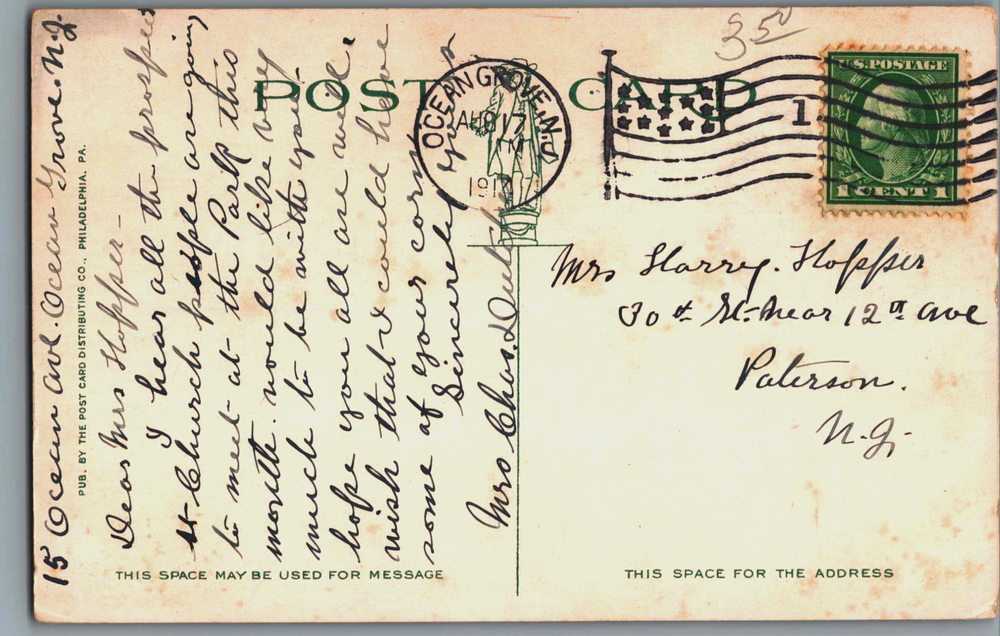 3 50
POST CARD
U.S. POSTAGE
1 CENT 1
OCEAN GROVE, N.J.
AUG 17
1
15 Ocean ave. Ocean Grove. N.J.
PUB. BY THE POST CARD DISTRIBUTING CO., PHILADELPHIA, PA.
Dear Mrs Hopper-
I hear all the prospect
st Church people are going
to meet at the Park this
month. would like very
much to be with you.
hope you all are well.
wish that I could have
some of your corn
Sincerely yours
Mrs Chas.
Mrs Harry. Hopper
30th St- near 12th ave
Paterson.
N.J.
THIS SPACE MAY BE USED FOR MESSAGE
THIS SPACE FOR THE ADDRESS